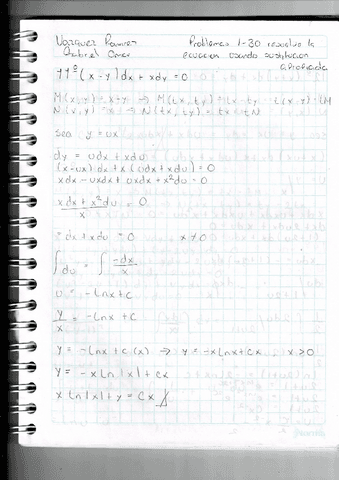 Vazquez Ramirez
Gabriel Omar
Problemas 1-30 resuelva la
ecuacion usando sustitucion
apropiada
(x-y)dx + xdy = 0
M(x,y) = x-y → M(tx,ty) = tx-ty = t(x-y) = tM
N(x,y) = x → N(tx,ty) = tx = tN
sea y = ux
dy = udx + xdu
(x-ux)dx + x(udx+xdu) = 0
xdx - uxdx + uxdx + x²du = 0
xdx + x²du = 0
x
= dx + xdu = 0 x≠0
∫du = ∫-dx/x
u = -Lnx + c
y/x = -Lnx + c
y = -Lnx + c (x) → y = -xLnx + cx , x>0
y = -xLn|x| + cx
x Ln|x| + y = Cx